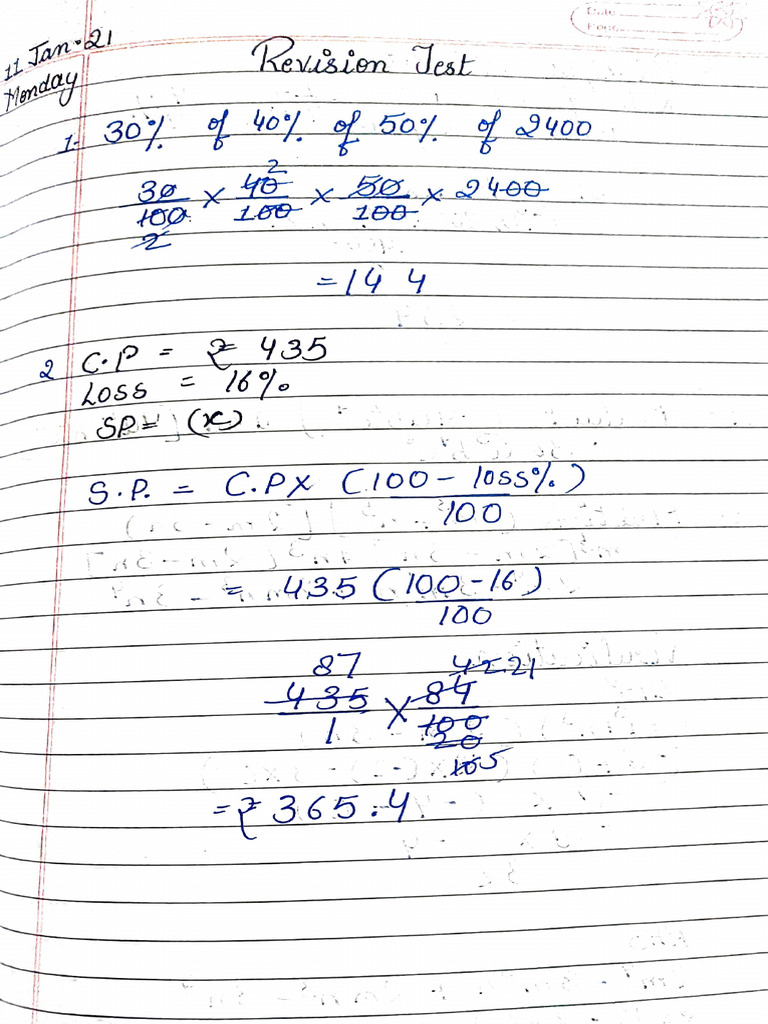 Date
Page
11 Jan - 21
Monday
Revision Test
1- 30% of 40% of 50% of 2400
2
30/100 × 40/100 × 50/100 × 2400
2
= 144
2 C.P = ₹ 435
Loss = 16%
SP = (x)
S.P. = C.P × (100 - loss%)
100
= 435 (100-16)
100
87 42 21
435 × 84
1 100
20
10 5
= ₹ 365.4